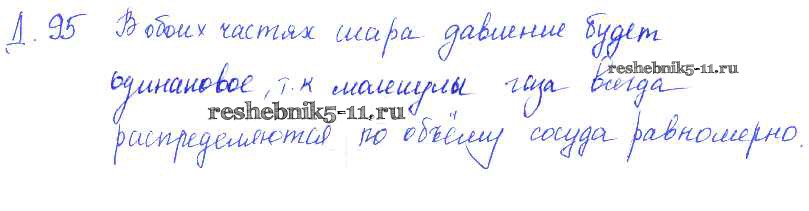 Д. 95 В обоих частях шара давление будет
одинаковое, т.к молекулы газа всегда
reshebnik5-11.ru
reshebnik5-11.ru
распределяются по объёму сосуда равномерно.